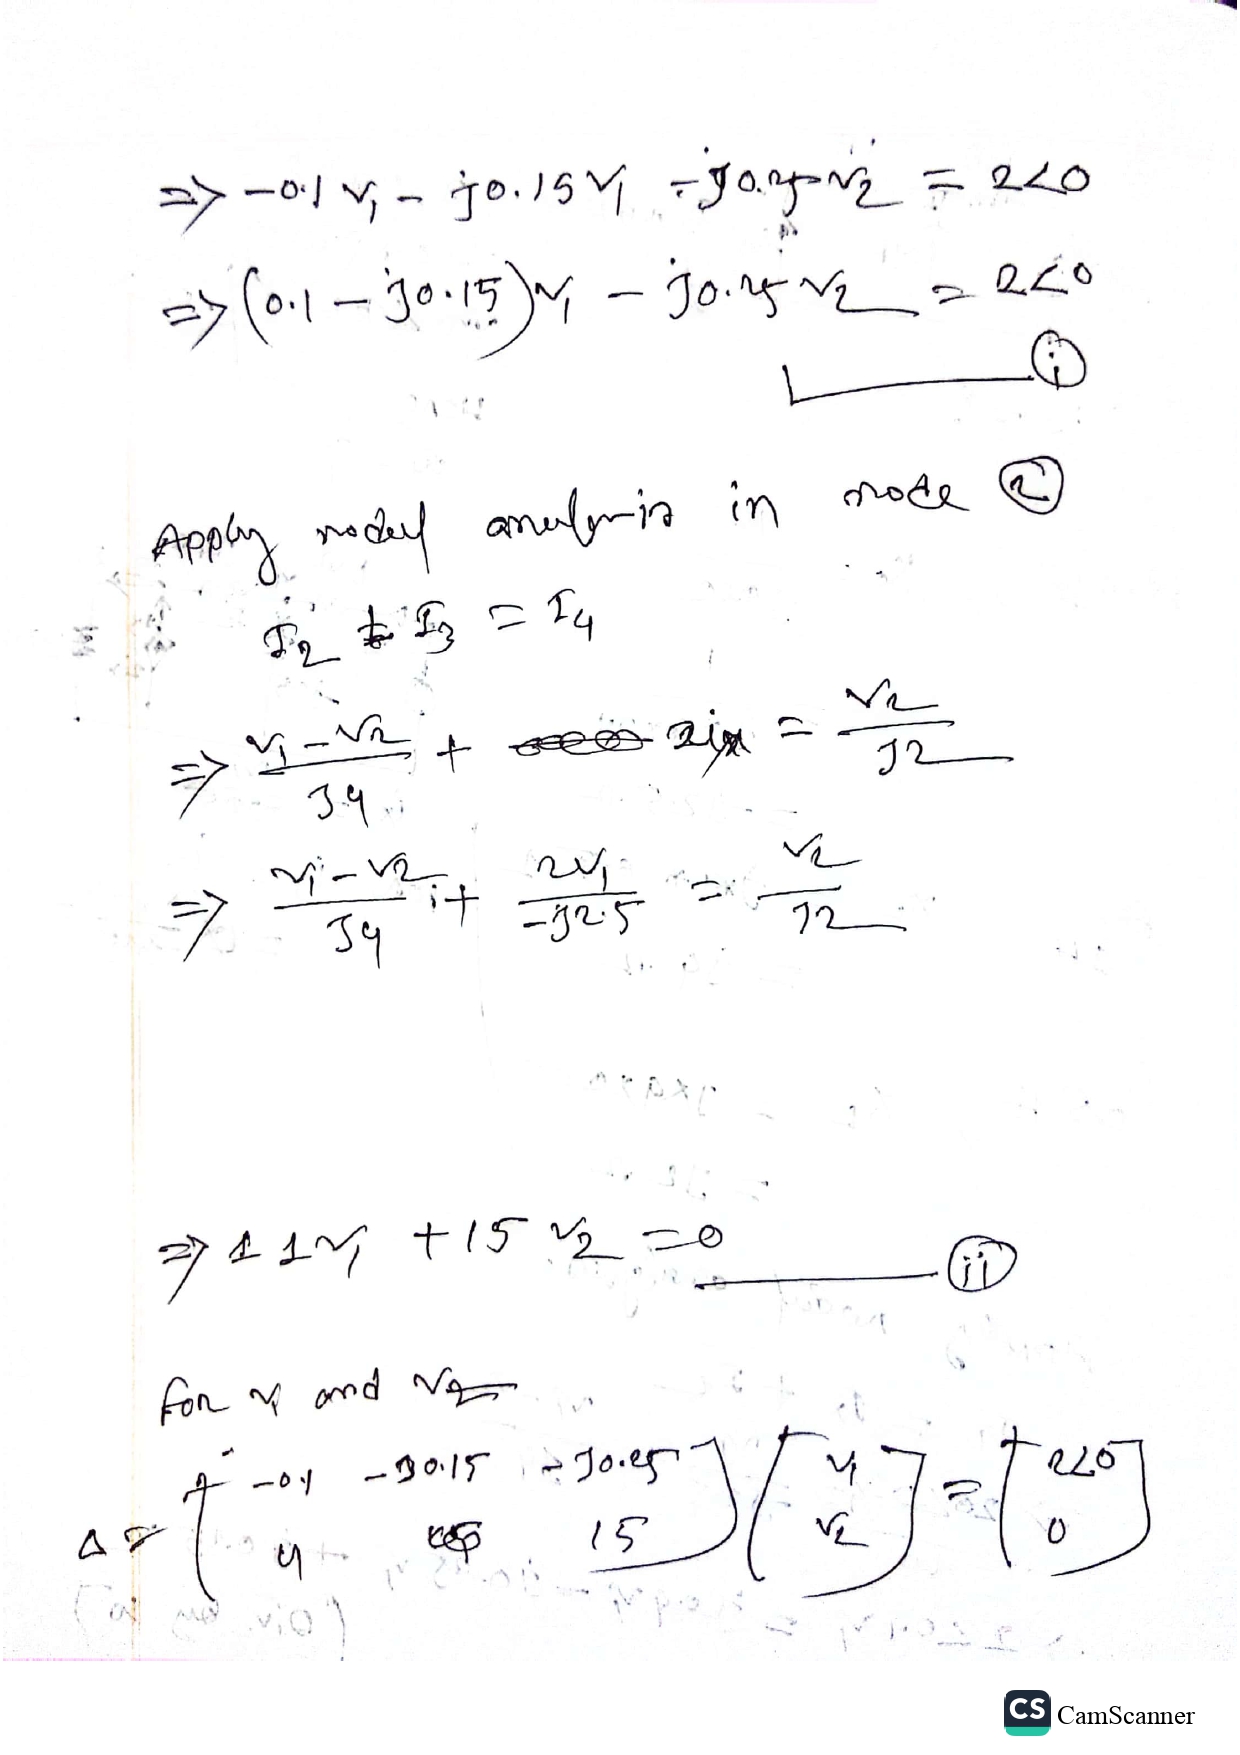 => -0.1 V1 - j0.15 V1 - j0.25 V2 = 2<0
=> (0.1 - j0.15) V1 - j0.25 V2 = 2<0
(i)
Apply nodal analysis in node (2)
I2 + I3 = I4
=> (V1 - V2)/J4 + 2ix = V2/J2
=> (V1 - V2)/J4 + 2V1/-J2.5 = V2/J2
=> 11V1 + 15 V2 = 0
(ii)
For V1 and V2
Δ = [-0.1 -J0.15 -J0.25; 11 15] [V1; V2] = [2<0; 0]
CS CamScanner